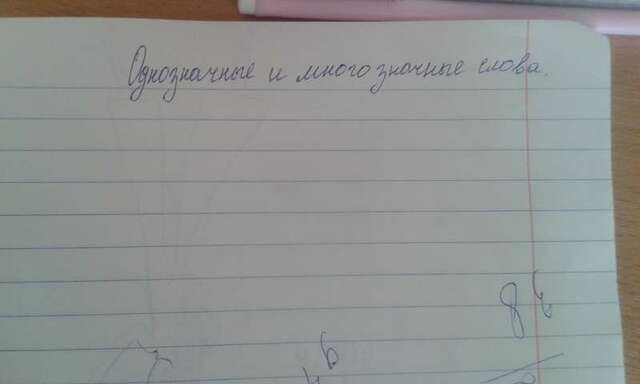 Однозначные и многозначные слова.